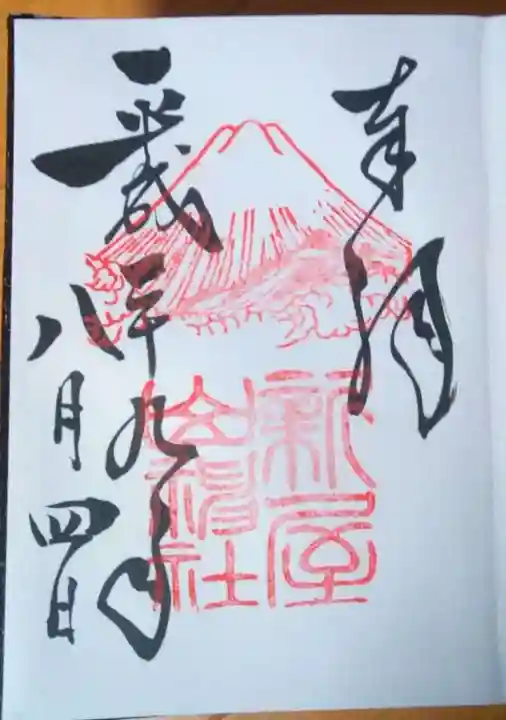 奉拝
新屋
山神社
平成二十九年
八月四日